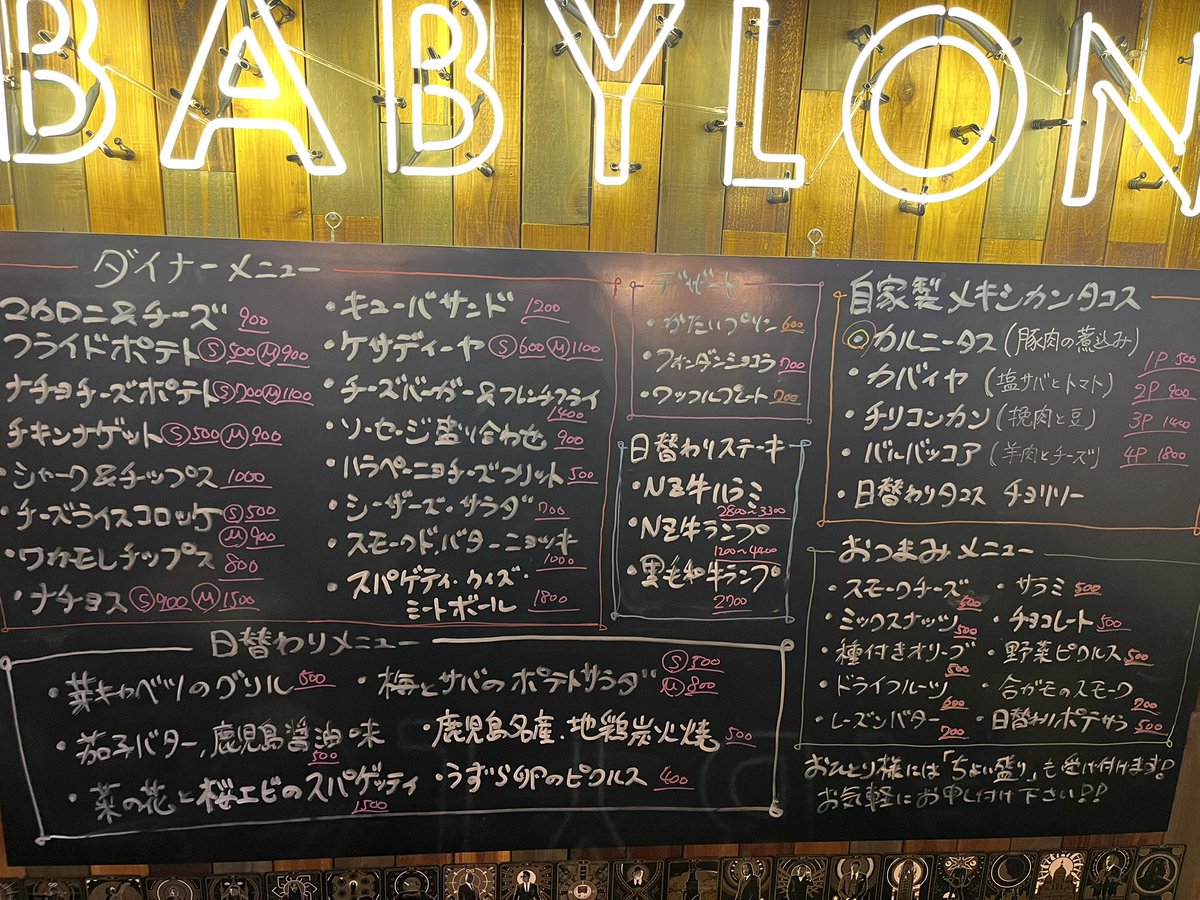 BABYLON
ダイナーメニュー
マカロニ&チーズ 900
フライドポテト Ⓢ500 Ⓜ900
ナチョチーズポテト Ⓢ700 Ⓜ1100
チキンナゲット Ⓢ500 Ⓜ900
・シャーク&チップス 1000
・チーズライスコロッケ Ⓢ500
Ⓜ900
・ワカモレチップス 800
・ナチョス Ⓢ900 Ⓜ1500
・キューバサンド 1200
・ケサディーヤ Ⓢ600 Ⓜ1100
・チーズバーガー&フレンチフライ
1400
・ソーセージ盛り合わせ 900
・ハラペーニョチーズフリット 500
・シーザーズ・サラダ 700
・スモークド・バターニョッキ
1000
・スパゲティ・クイズ・
ミートボール 1800
デザート
・かたいプリン 600
・フォンダンショコラ 700
・ワッフルプレート 700
日替わりステーキ
・NZ牛ハラミ
2800〜3300
・NZ牛ランプ
1200〜4400
・黒毛和牛ランプ
2700
自家製メキシカンタコス
◎カルニータス (豚肉の煮込み)
・カバイヤ (塩サバとトマト)
・チリコンカン (挽肉と豆)
・バルバッコア (羊肉とチーズ)
・日替わりタコス チョリソー
1P 500
2P 900
3P 1400
4P 1800
おつまみメニュー
・スモークチーズ 500
・ミックスナッツ 500
・種付きオリーブ 500
・ドライフルーツ 600
・レーズンバター 700
・サラミ 500
・チョコレート 500
・野菜ピクルス 500
・合ガモのスモーク 700
・日替わりポテサラ 500
おひとり様には「ちょい盛り」も受け付けます!
お気軽にお申し付け下さい!!
日替わりメニュー
・芽キャベツのグリル 500
・茄子バター、鹿児島醤油味
500
・菜の花と桜エビのスパゲッティ
1500
・梅とサバのポテトサラダ Ⓢ500
Ⓜ800
・鹿児島名産、地鶏炭火焼 500
・うずら卵のピクルス 400